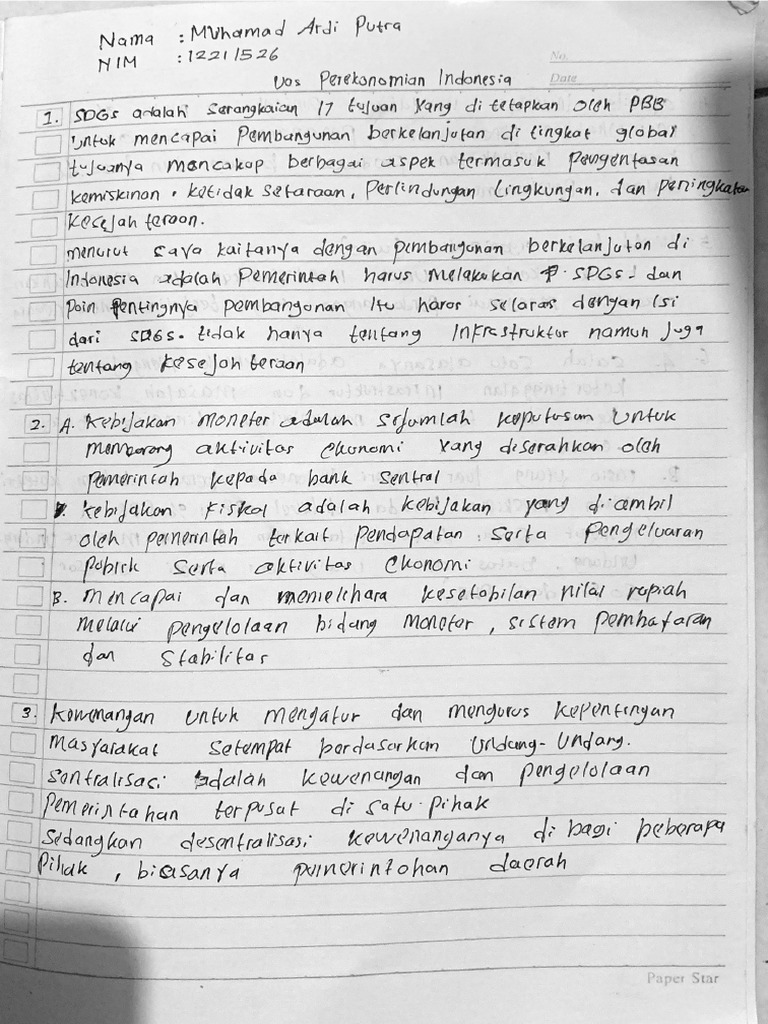 Nama : Muhamad Ardi Putra
NIM : 12211526
No.
Uos Perekonomian Indonesia
Date
1. SDGs adalah serangkaian 17 tujuan yang di tetapkan oleh PBB
untuk mencapai pembangunan berkelanjutan di tingkat global
tujuanya mencakup berbagai aspek termasuk pengentasan
kemiskinan. ketidak setaraan, perlindungan lingkungan, dan peningkatan
kesejah teraan.
menurut saya kaitanya dengan pembangunan berkelanjutan di
Indonesia adalah pemerintah harus melakukan SDGs. dan
poin pentingnya pembangunan itu harus selaras dengan isi
dari SDGs. tidak hanya tentang infrastruktur namun juga
tentang kesejah teraan
2. A. Kebijakan moneter adalah sejumlah keputusan untuk
memborong aktivitas ekonomi yang diserahkan oleh
pemerintah kepada bank sentral
kebijakan fiskal adalah kebijakan yang diambil
oleh pemerintah terkait pendapatan serta pengeluaran
publik serta aktivitas ekonomi
B. mencapai dan memelihara kesetabilan nilai rupiah
melalui pengelolaan bidang moneter, sistem pembayaran
dan stabilitas
3. kewenangan untuk mengatur dan mengurus kepentingan
masyarakat setempat berdasarkan undang-undang.
sentralisasi adalah kewenangan dan pengelolaan
pemerintahan terpusat di satu pihak
sedangkan desentralisasi kewenanganya di bagi beberapa
pihak, biasanya pemerintahan daerah
Paper Star